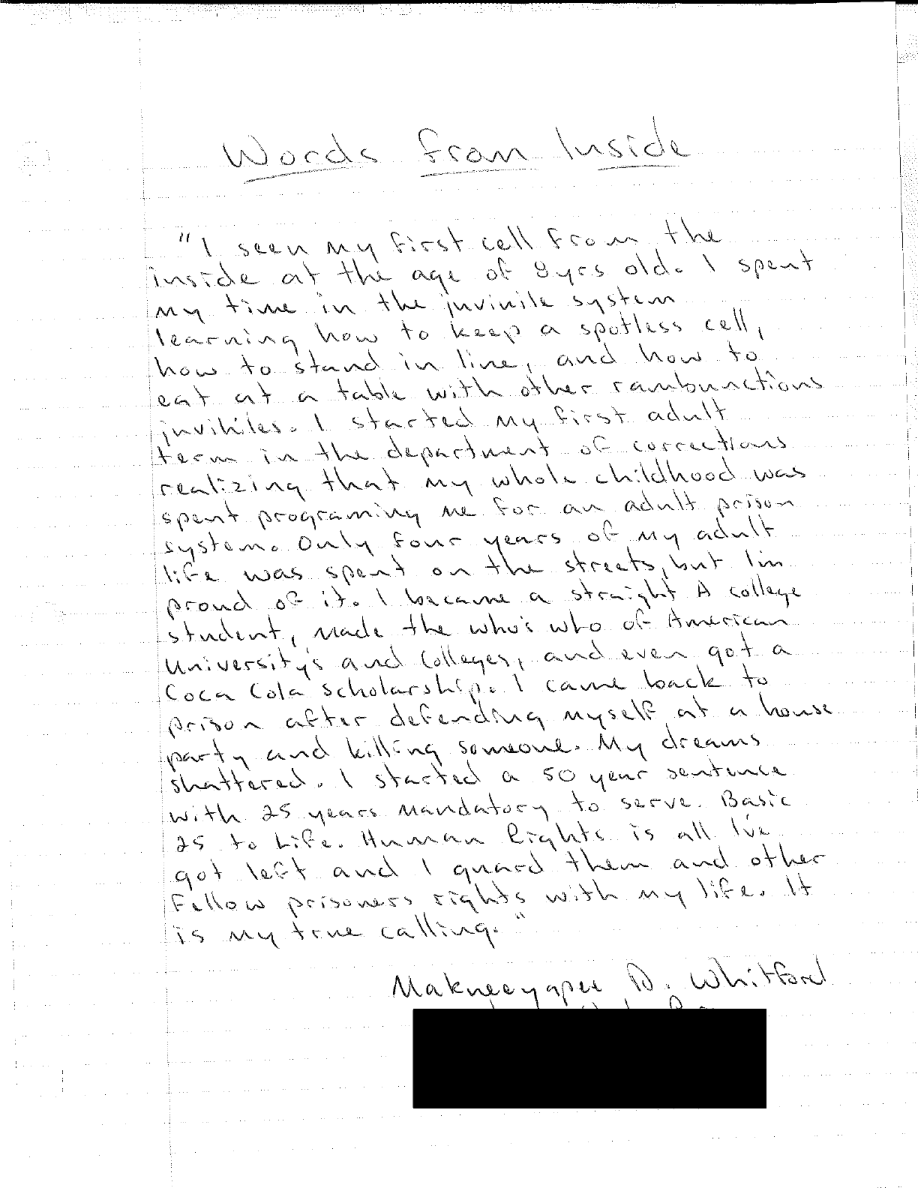 Words From Inside
"I seen my first cell from the
inside at the age of 9yrs old. I spent
my time in the juvinile system
learning how to keep a spotless cell,
how to stand in line, and how to
eat at a table with other rambunctions
juviniles. I started my first adult
term in the department of corrections
realizing that my whole childhood was
spent programing me for an adult prison
system. Only four years of my adult
life was spent on the streets, but I'm
proud of it. I became a straight A college
student, made the who's who of American
University's and Colleges, and even got a
Coca Cola scholarship. I came back to
prison after defending myself at a house
party and killing someone. My dreams
shattered. I started a 50 year sentence
with 25 years mandatory to serve. Basic
25 to Life. Human Rights is all I've
got left and I guard them and other
fellow prisoners rights with my life. It
is my true calling."
Makneeyapee D. Whitford